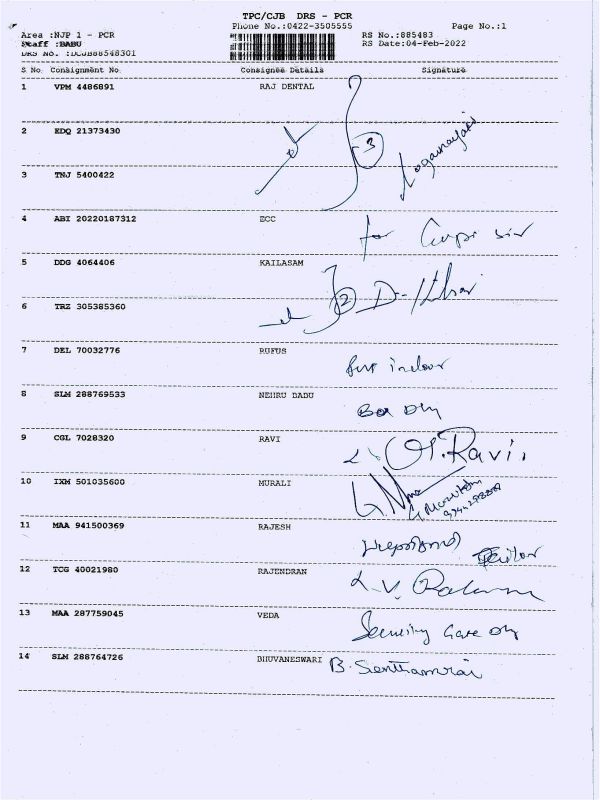 TPC/CJB DRS - PCR
Phone No.:0422-3505555
Page No.:1
Area :NJP 1 - PCR
RS No.:885483
Staff :BABU
RS Date:04-Feb-2022
DRS No. :DCJB88548301
S No Consignment No Consignee Details Signature
1 VPM 4486891 RAJ DENTAL
2 EDQ 21373430
3
3 TNJ 5400422
4 ABI 20220187312 ECC
for
5 DDG 4064406 KAILASAM
2 Dr
6 TRZ 305385360
7 DEL 70032776 RUFUS
8 SLM 288769533 NEHRU BABU
Box
9 CGL 7028320 RAVI
M.Ravi.
10 IXM 501035600 MURALI
11 MAA 941500369 RAJESH
12 TCG 40021980 RAJENDRAN
13 MAA 287759045 VEDA
Security Gate
14 SLM 288764726 BHUVANESWARI B. Senthamarai